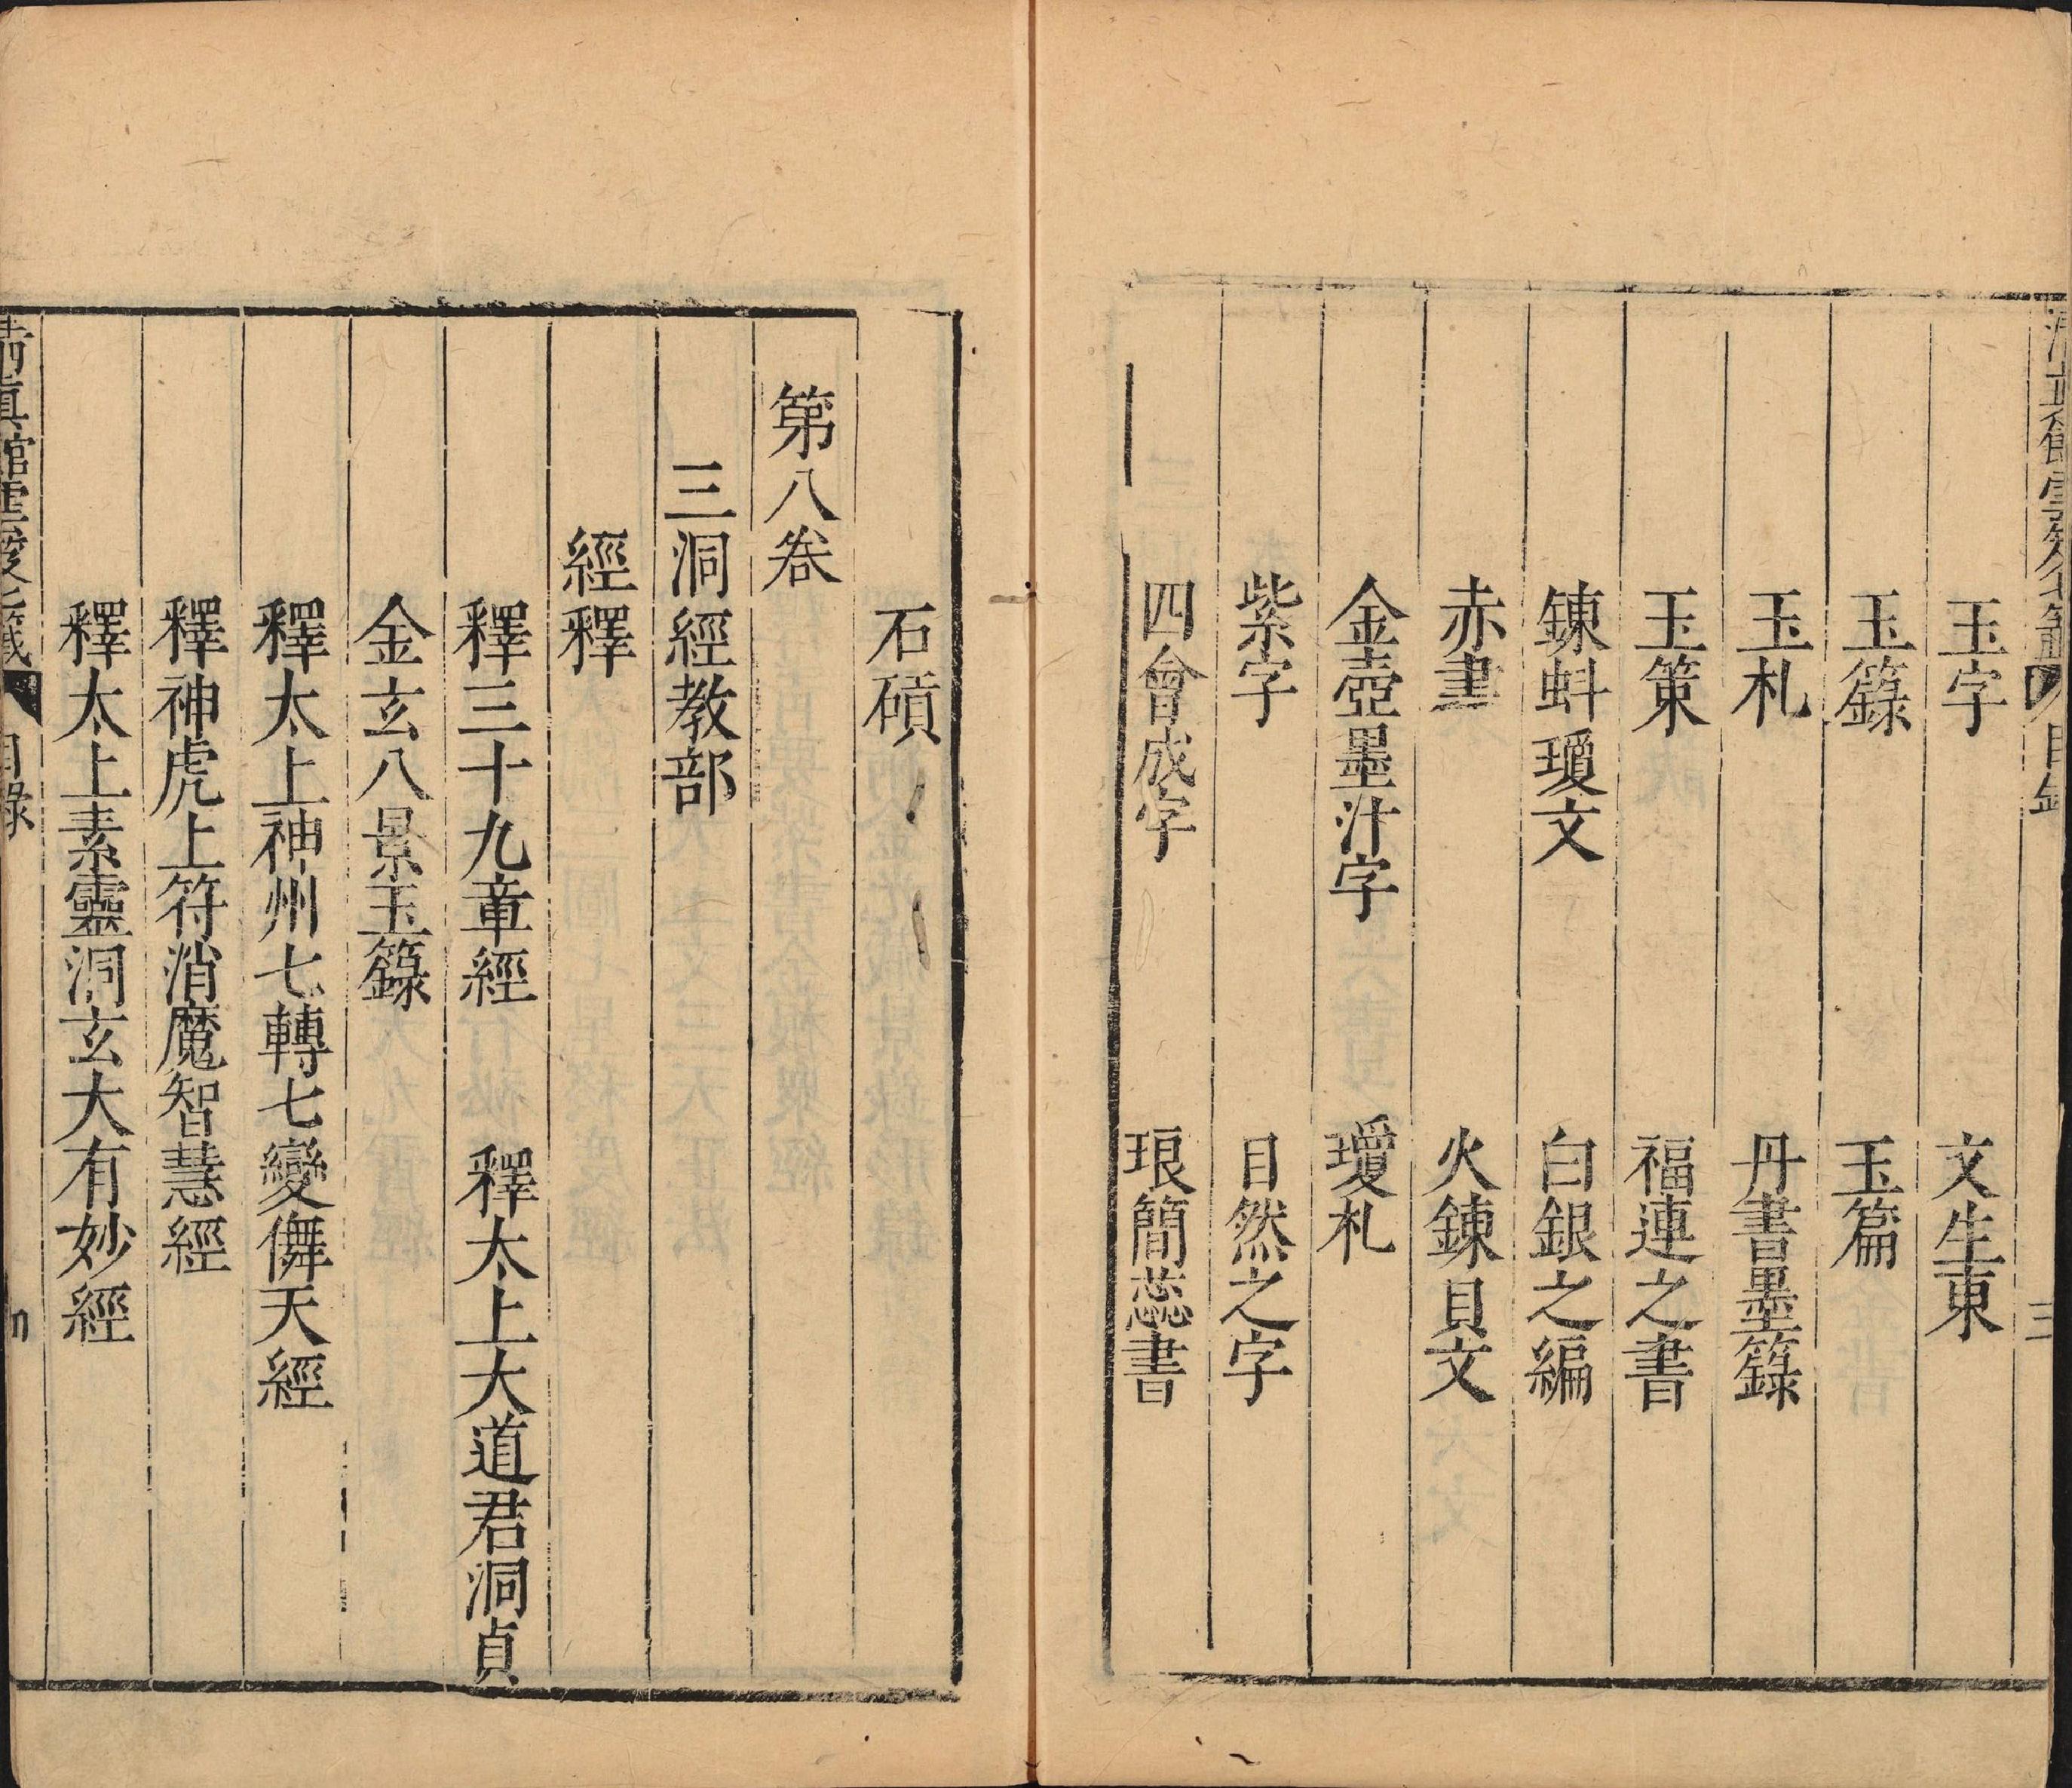 玉字 文生東
玉籙 玉篇
玉札 丹書墨籙
玉策 福連之書
錬蚪瓊文 白銀之編
赤書 火錬貝文
金壺墨汁字 瓊札
紫字 目然之字
四會成字 琅簡蕊書
石碩
第八卷
三洞經教部
經釋
釋三十九章經 釋太上大道君洞貞
金玄八景玉籙
釋太上神州七轉七變儛天經
釋神虎上符消魔智慧經
釋太上素靈洞玄大有妙經